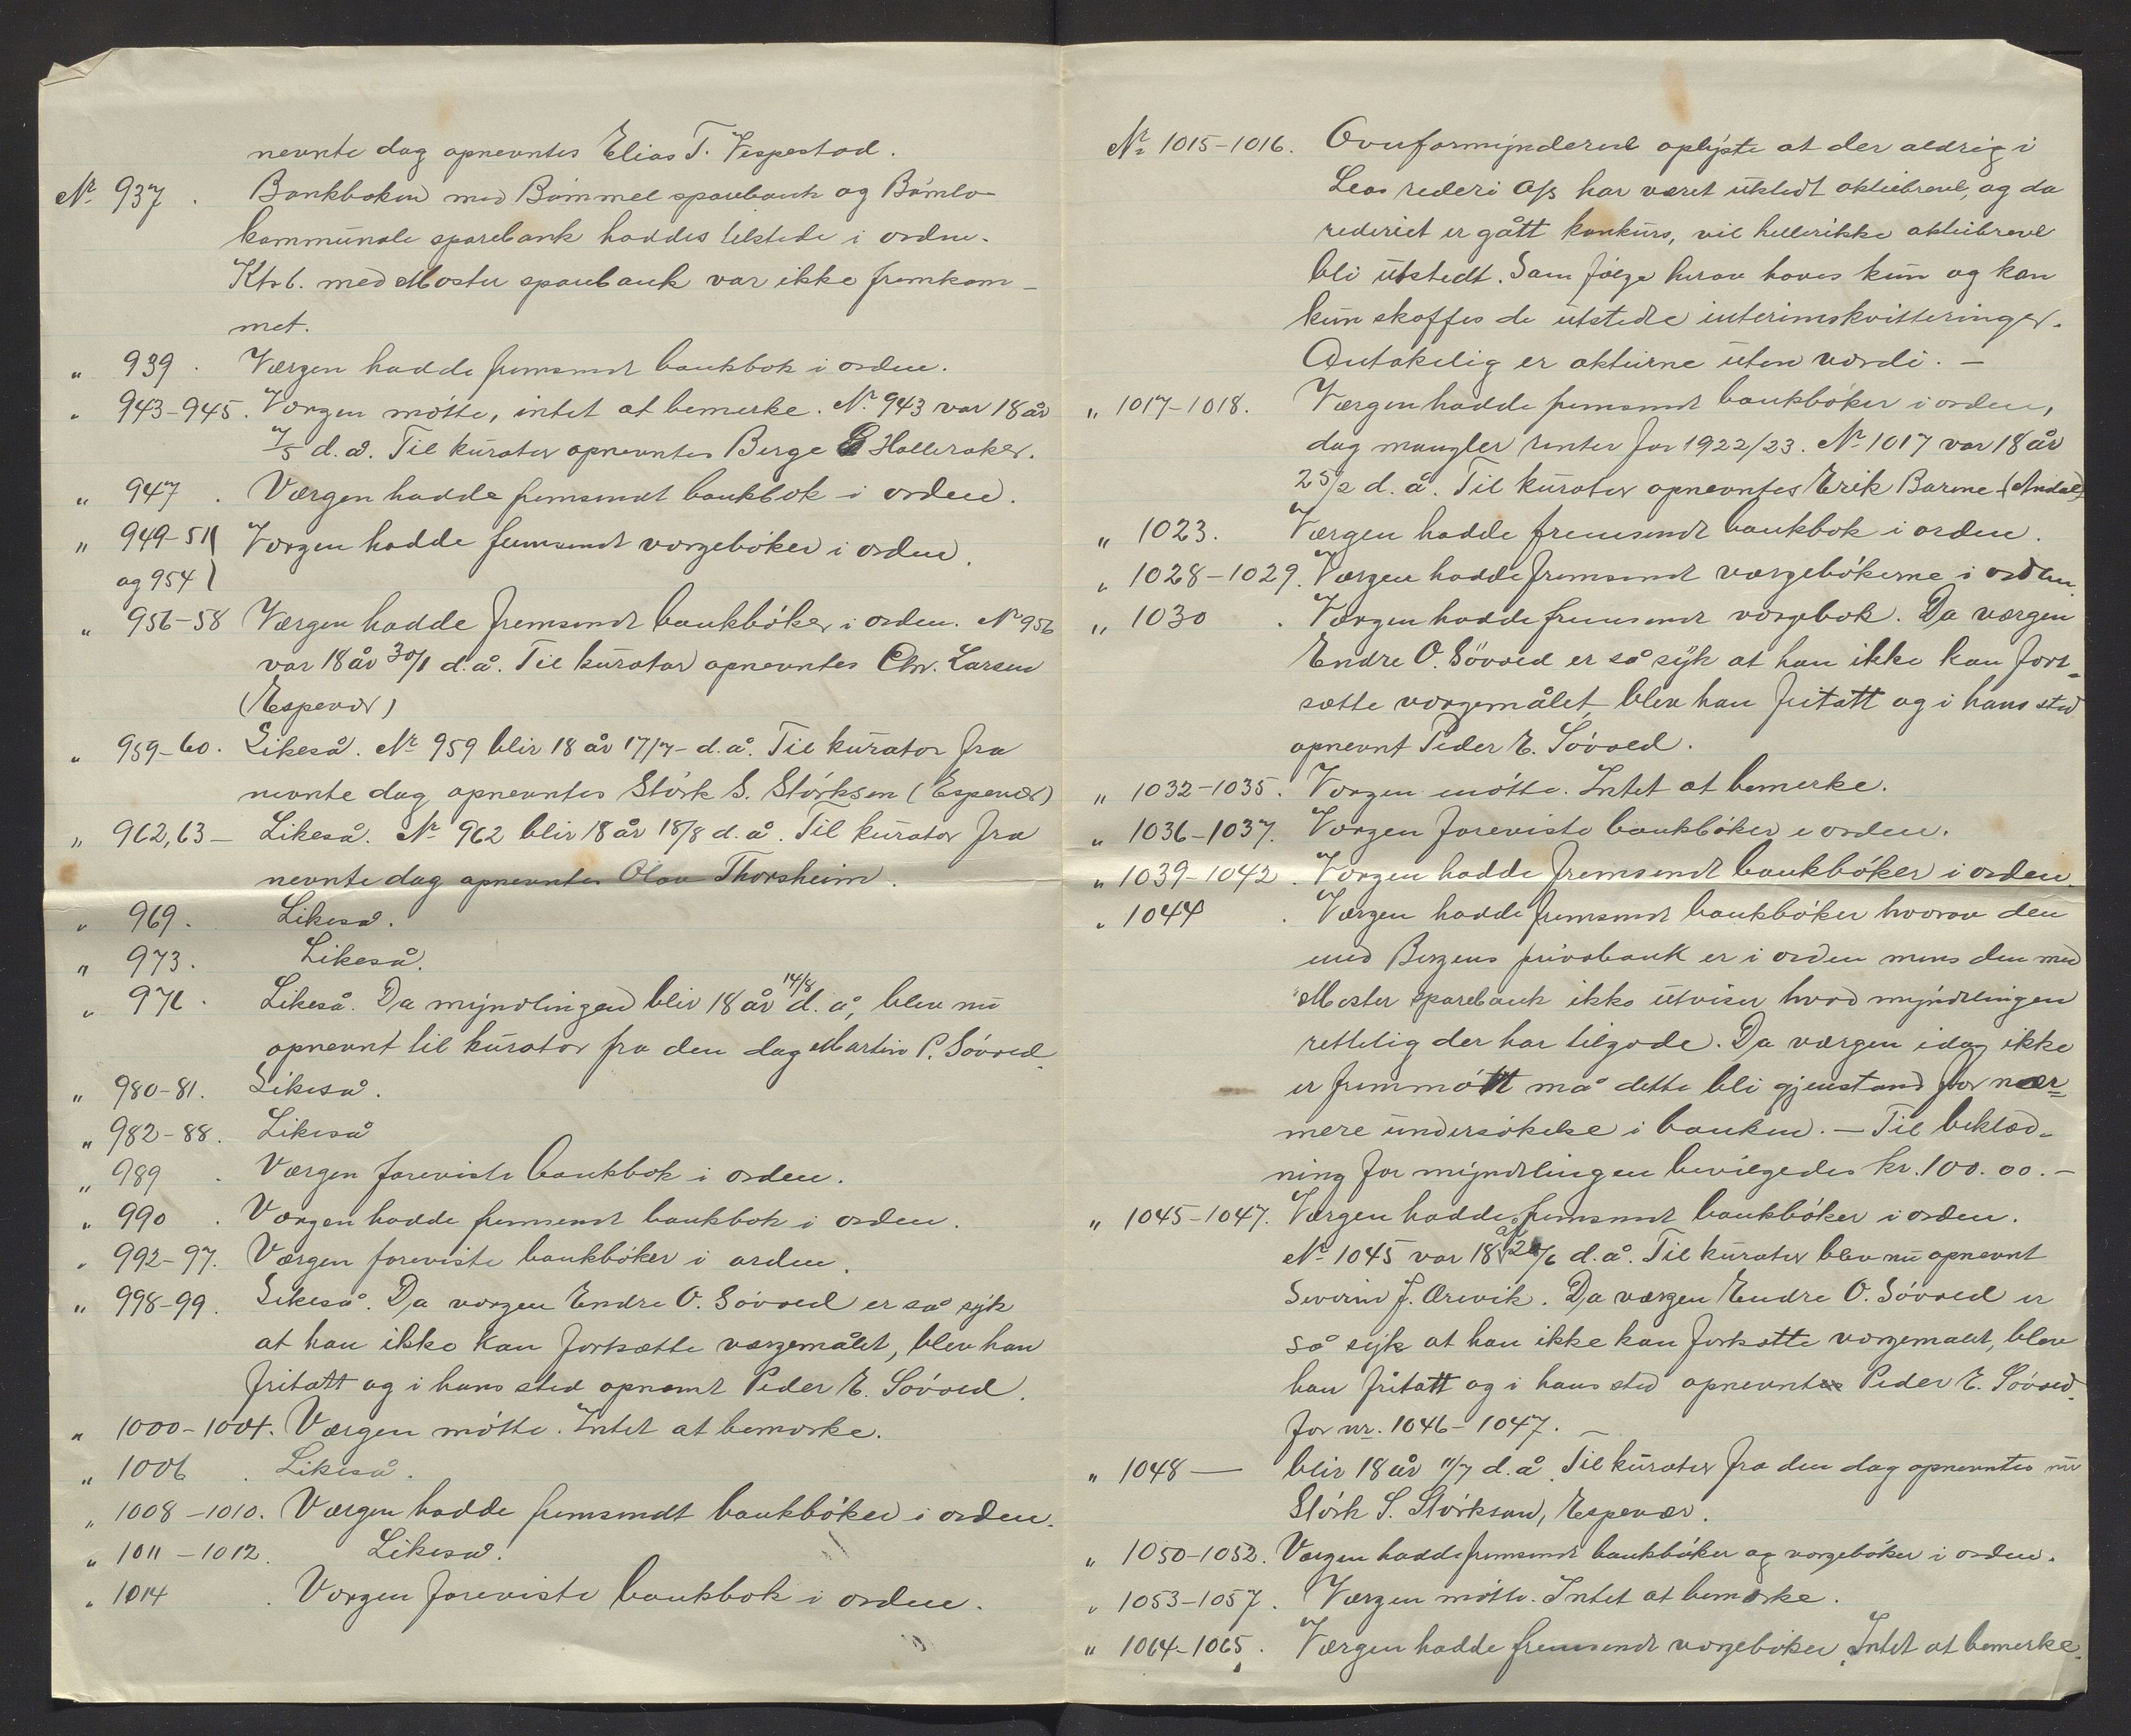 nevnte dag opnevntes Elias T. Vespestad.
Nr. 937. Bankboken med Bömmel sparebank og Bömlo
kommunale sparebank haddes tilstede i orden.
Ktrb. med Moster sparebank var ikke fremkom-
met.
" 939. Værgen hadde fremsendt bankbok i orden.
" 943-945. Værgen mötte, intet at bemerke. Nr. 943 var 18 år
7/5 d.å. Til kurator opnevntes Berge Halleraker.
" 947. Værgen hadde fremsendt bankbok i orden.
" 949-51 Værgen hadde fremsendt værgebøker i orden.
og 954
" 956-58 Værgen hadde fremsendt bankböker i orden. Nr 956
var 18 år 30/1 d.å. Til kurator opnevntes Chr. Larsen
(Espevær)
" 959-60. Likeså. Nr. 959 blir 18 år 17/7- d.å. Til kurator fra
nevnte dag opnevntes Störk S. Störksen (Espevær)
" 962,63- Likeså. Nr. 962 blir 18 år 18/8 d.å. Til kurator fra
nevnte dag opnevntes Olav Thorsheim.
" 969. Likeså.
" 973. Likeså.
" 976. Likeså. Da myndlingen blir 18 år 14/8 d.å, blev nu
opnevnt til kurator fra den dag Martin P. Sövold.
" 980-81. Likeså.
" 982-88. Likeså
" 989. Værgen foreviste bankbok i orden.
" 990. Værgen hadde fremsendt bankbok i orden.
" 992-97. Værgen foreviste bankböker i orden.
" 998-99. Likeså. Da værgen Endre O. Sövold er så syk
at han ikke kan fortsætte værgemålet, blev han
fritatt og i hans sted opnevnt Peder E. Sövold.
" 1000-1004. Værgen mötte. Intet at bemerke.
" 1006. Likeså.
" 1008-1010. Værgen hadde fremsendt bankböker i orden.
" 1011-1012. Likeså.
" 1014. Værgen foreviste bankbok i orden.
Nr. 1015-1016. Overformynderiet oplyste at der aldrig i
Leas rederi A/S har været utstedt aktiebreve, og da
rederiet er gått konkurs, vil heller ikke aktiebreve
bli utstedt. Som fölge herav haves kun og kan
kun skaffes de utstedte interimskvitteringer.
Antakelig er aktierne uten værdi. -
" 1017-1018. Værgen hadde fremsendt bankböker i orden,
dog mangler renter for 1922/23. Nr. 1017 var 18 år
25/2 d.å. Til kurator opnevntes Erik Barme (Andal)
" 1023. Værgen hadde fremsendt bankbok i orden.
" 1028-1029. Værgen hadde fremsendt værgebökerne i orden.
" 1030. Værgen hadde fremsendt værgebok. Da værgen
Endre O. Sövold er så syk at han ikke kan fort-
sætte værgemålet, blev han fritatt og i hans sted
opnevnt Peder E. Sövold.
" 1032-1035. Værgen mötte. Intet at bemerke.
" 1036-1037. Værgen foreviste bankböker i orden.
" 1039-1042. Værgen hadde fremsendt bankböker i orden.
" 1044. Værgen hadde fremsendt bankböker hvorav den
med Bergens privatbank er i orden mens den med
Moster sparebank ikke utviser hvad myndlingen
rettelig der har tilgode. Da værgen idag ikke
er fremmött må dette bli gjenstand for nær-
mere undersökelse i banken. - Til beklæd-
ning for myndlingen bevilgedes kr. 100.00.-
" 1045-1047. Værgen hadde fremsendt bankböker i orden.
Nr. 1045 var 18 år /6 d.å. Til kurator blev nu opnevnt
Severin J. Ørevik. Da værgen Endre O. Sövold er
så syk at han ikke kan fortsætte værgemålet, blev
han fritatt og i hans sted opnevnt Peder E. Sövold.
for nr. 1046-1047. -
" 1048 - blir 18 år 11/7 d.å. Til kurator fra den dag opnevntes nu
Störk S. Störksen, Espevær.
" 1050-1052. Værgen hadde fremsendt bankböker og værgeböker i orden.
" 1053-1057. Værgen mötte. Intet at bemerke.
" 1064-1065. Værgen hadde fremsendt værgeböker. Intet at bemerke.